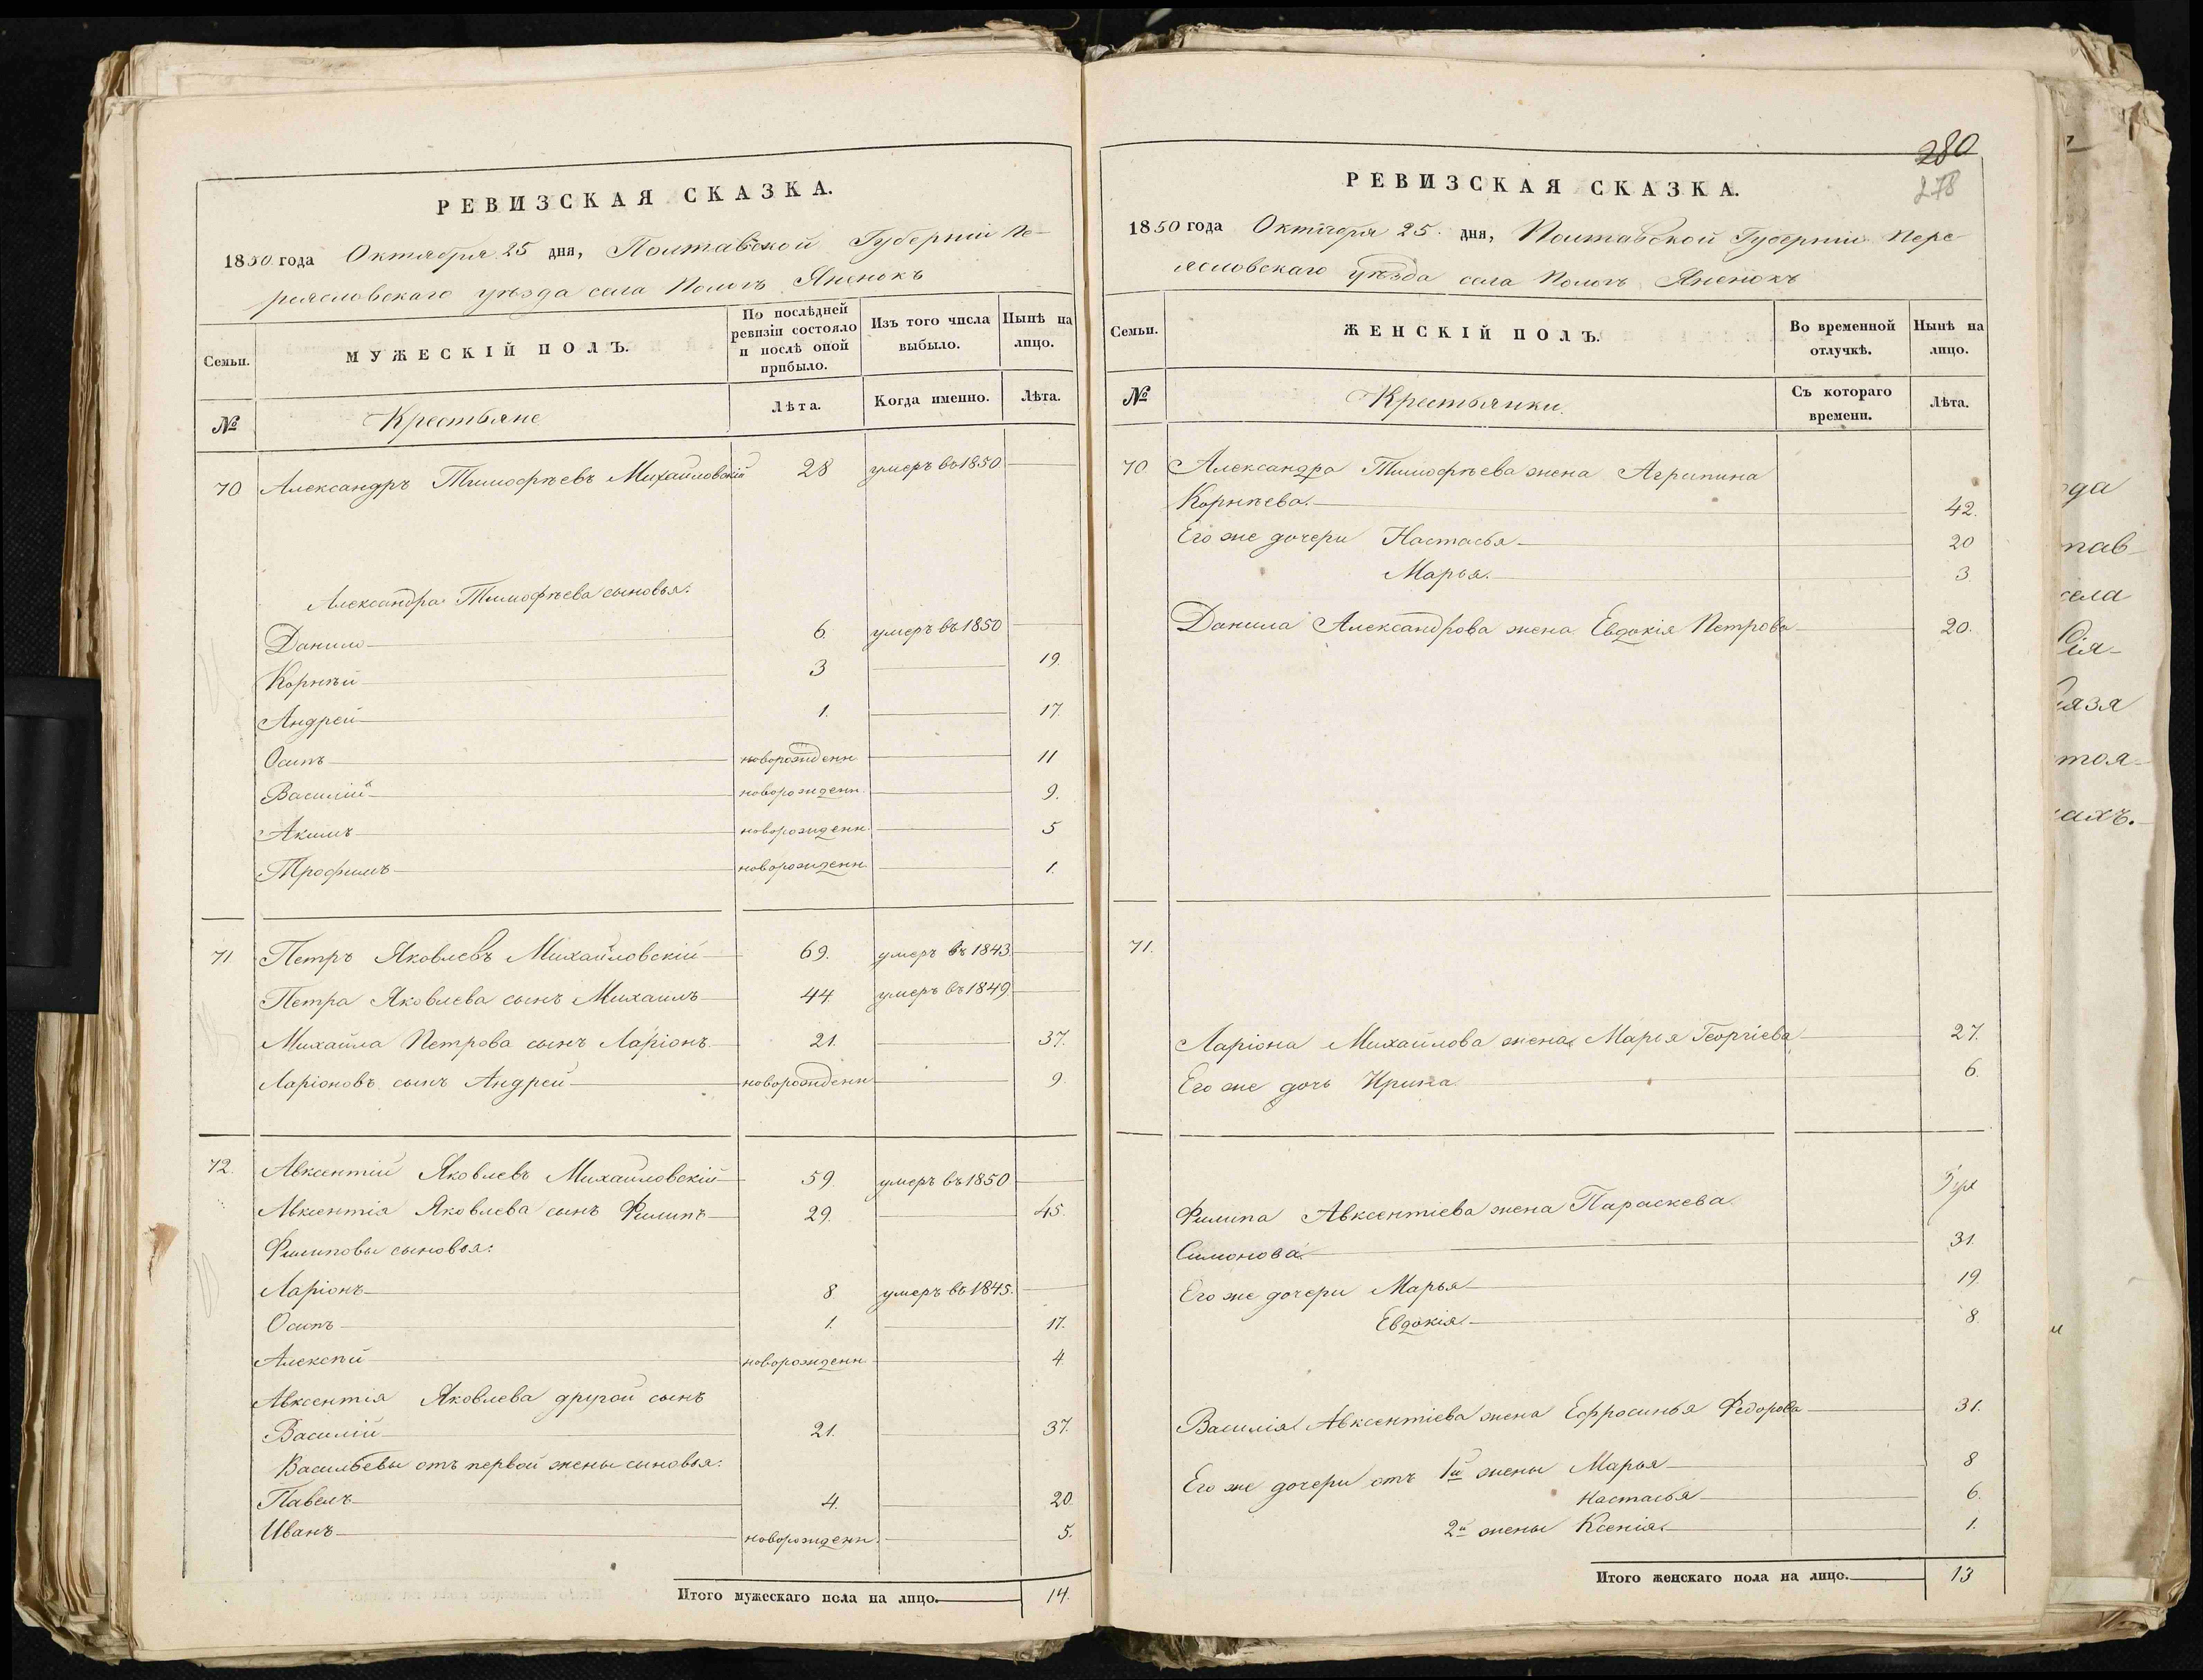 РЕВИЗСКАЯ СКАЗКА.
1850 года Октября 25 дня, Полтавской Губерніи Пе-
реясловскаго уѣзда села Пологъ Яненокъ
Семьи. МУЖЕСКІЙ ПОЛЪ. По послѣдней ревизіи состояло и послѣ оной прибыло. Изъ того числа выбыло. Нынѣ на лицо.
№ Крестьяне Лѣта. Когда именно. Лѣта.
70 Александръ Тимофѣевъ Михайловскій 28 умеръ въ 1850
Александра Тимофѣева сыновья:
Данило 6 умеръ въ 1850
Корнѣй 3 19.
Андрей 1. 17.
Осипъ новорожденн 11
Василій новорожденн. 9.
Акимъ новорожденн. 5
Трофимъ новорожденн 1.
71 Петръ Яковлевъ Михайловскій 69. умеръ въ 1843
Петра Яковлева сынъ Михаилъ 44 умеръ въ 1849
Михайла Петрова сынъ Ларіонъ 21. 37.
Ларіоновъ сынъ Андрей новорожденн 9.
72. Авксентій Яковлевъ Михайловскій 59 умеръ въ 1850
Авксентія Яковлева сынъ Филипъ 29. 45.
Филиповы сыновья:
Ларіонъ 8 умеръ въ 1845.
Осипъ 1. 17.
Алексѣй новорожденн 4.
Авксентія Яковлева другой сынъ
Василій 21. 37.
Васильевы отъ первой жены сыновья:
Павелъ 4. 20.
Иванъ новорожденн. 5.
Итого мужескаго пола на лицо. 14.
280
278
РЕВИЗСКАЯ СКАЗКА.
1850 года Октября 25. дня, Полтавской Губерніи Пере
ясловскаго уѣзда села Пологъ Яненокъ
Семьи. ЖЕНСКІЙ ПОЛЪ. Во временной отлучкѣ. Нынѣ на лицо.
№ Крестьянки. Съ котораго времени. Лѣта.
70 Александра Тимофѣева жена Агрипина
Корнѣева. 42.
Его же дочери Настасья 20
Марья. 3.
Данила Александрова жена Евдокія Петрова 20.
71.
Ларіона Михайлова жена Марья Георгіева 27.
Его же дочь Ирина 6.
Филипа Авксентіева жена Параскева
Симонова. 31.
Его же дочери Марья 19.
Евдокія. 8.
Василія Авксентіева жена Ефросинья Федорова 31.
Его же дочери отъ 1й жены Марья 8
Настасья 6.
2й жены Ксенія. 1.
Итого женскаго пола на лицо. 13